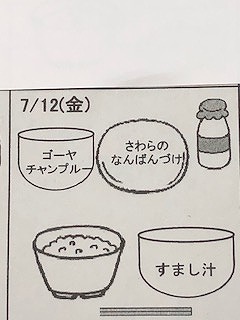 7/12(金)
ゴーヤ
チャンプルー
さわらの
なんばんづけ
すまし汁